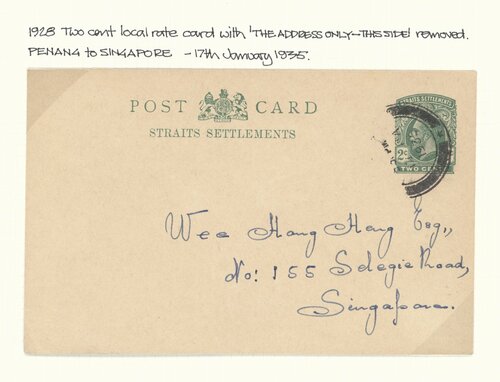 1928 Two cent local rate card with 'THE ADDRESS ONLY-THIS SIDE' removed.
PENANG to SINGAPORE - 17th January 1935.
POST CARD
STRAITS SETTLEMENTS
STRAITS SETTLEMENTS
2C
TWO CENTS
Wee Hong Heng Esq.,
No: 155 Selegie Road,
Singapore.